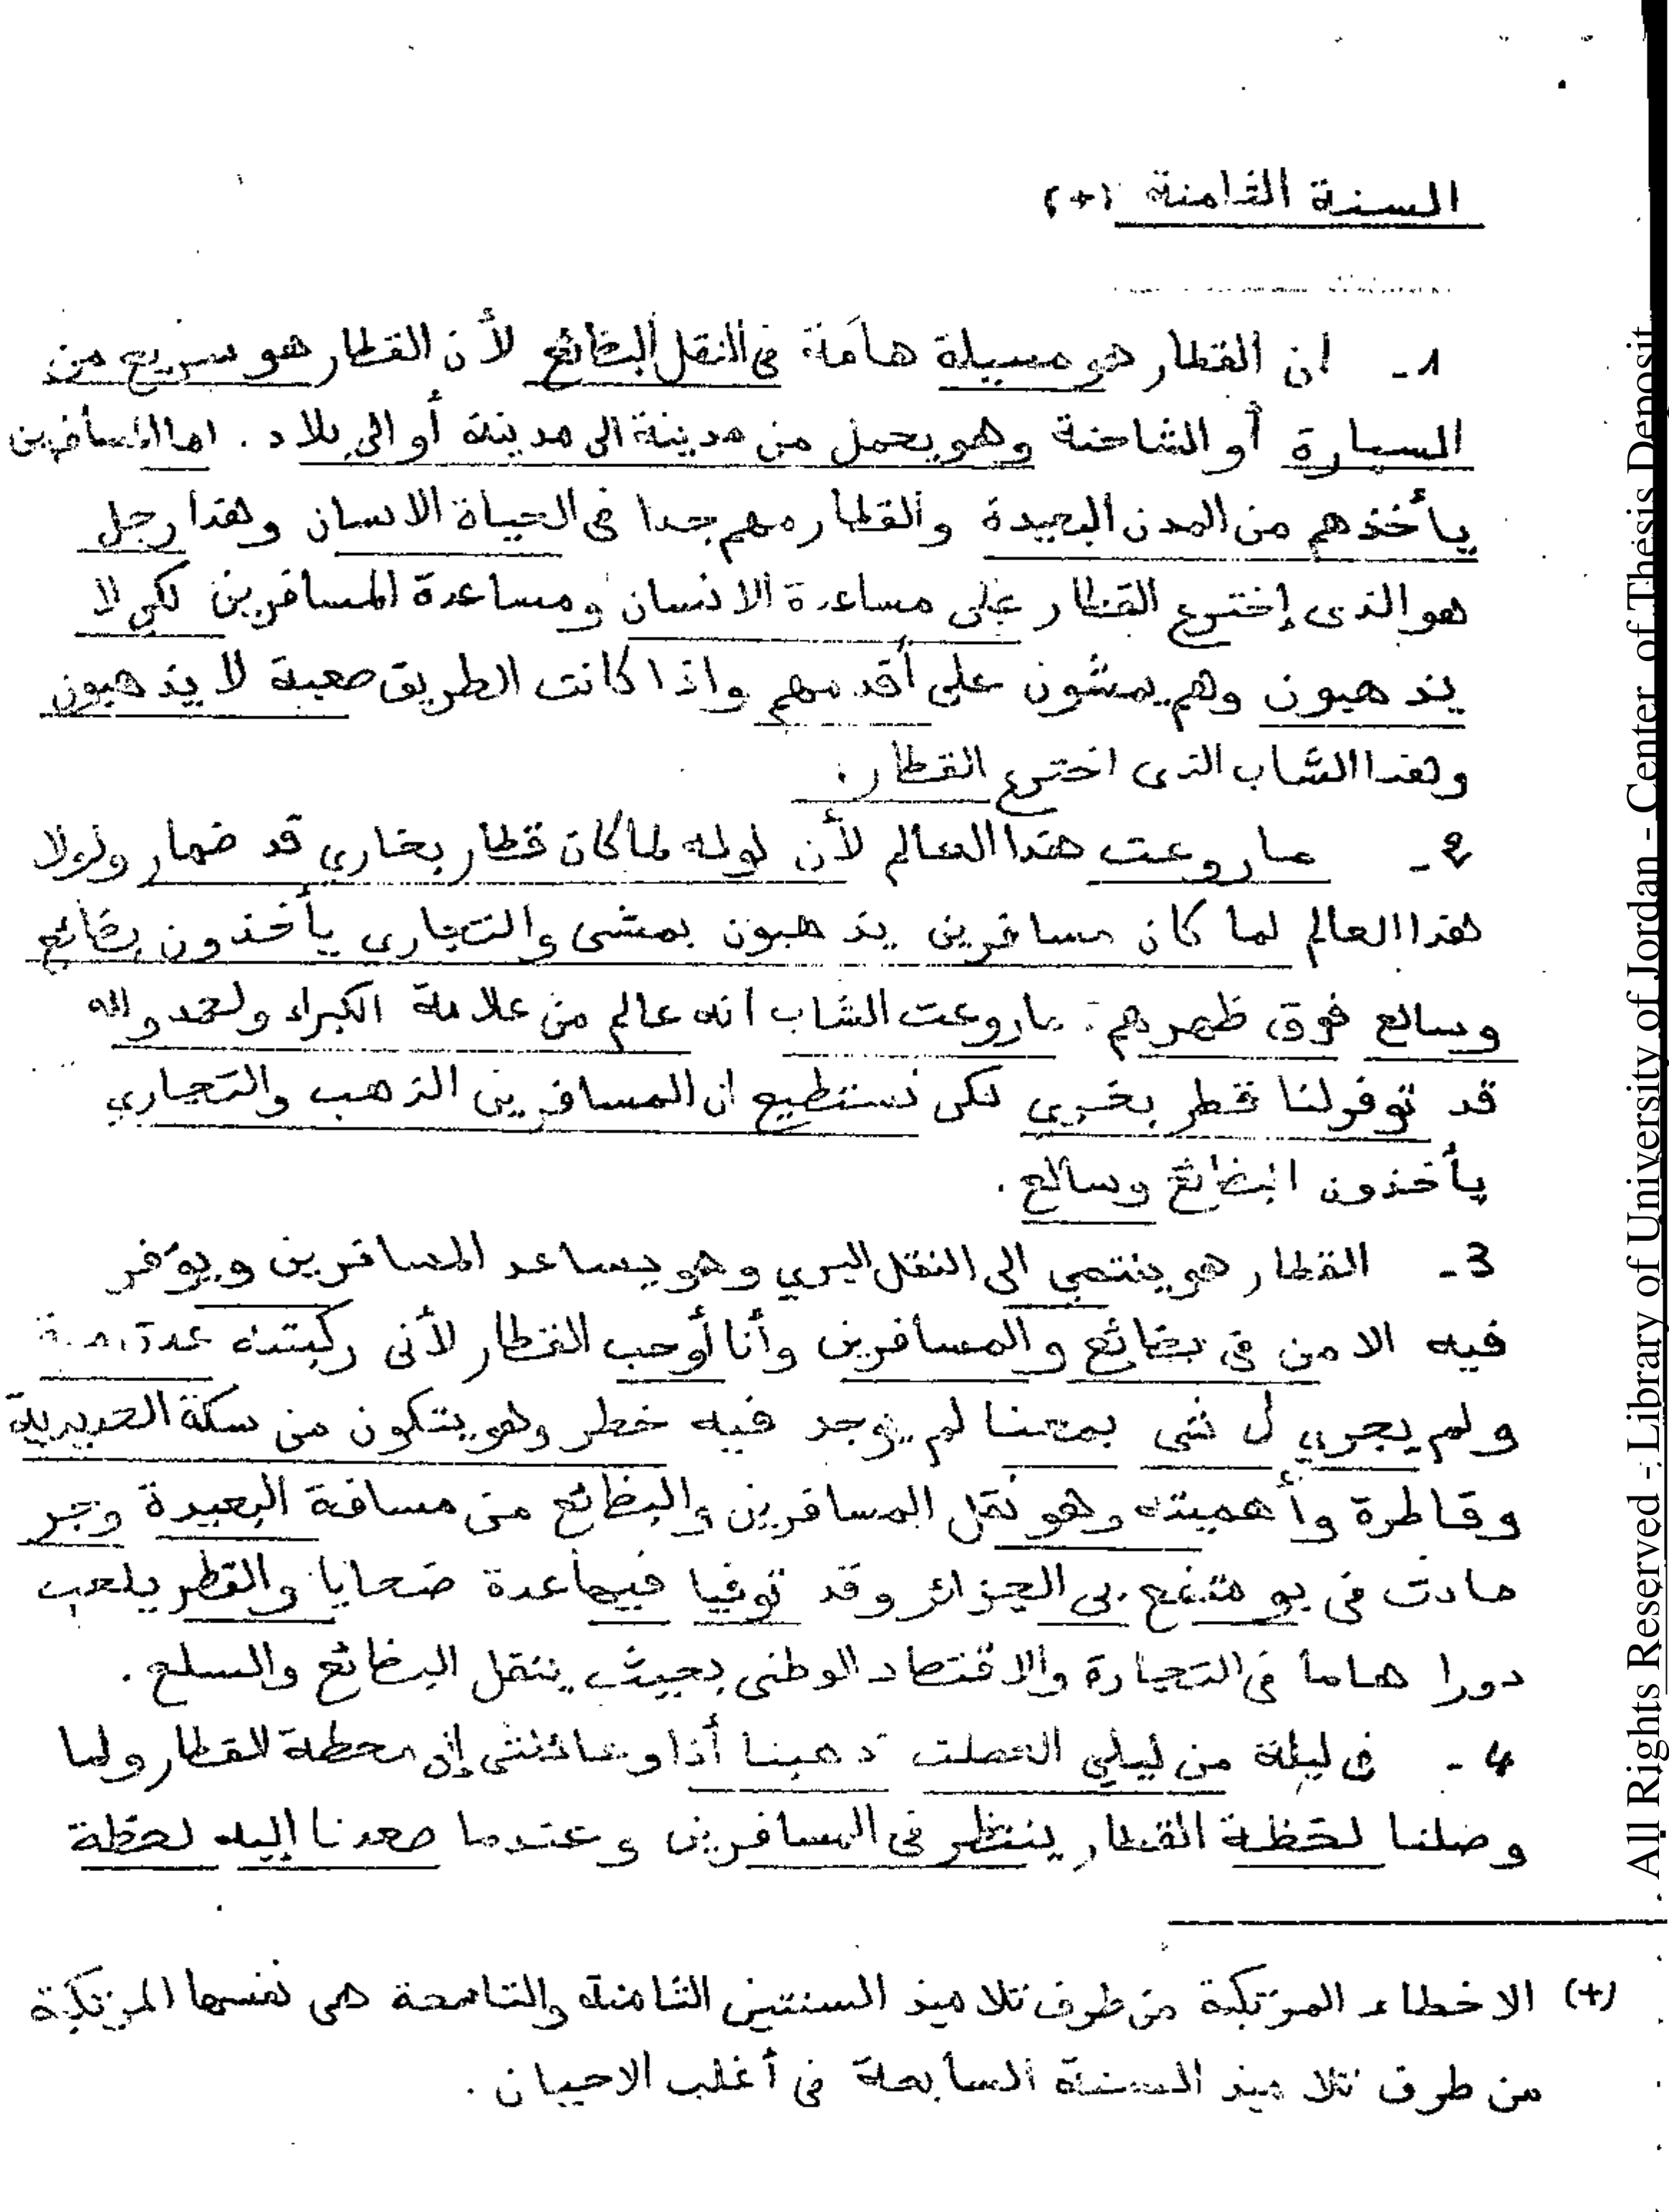 السنة الثامنة (+)
1- ان القطار هو مسيلة هامة فى النقل البظائع لأن القطار هو سريع من
السيارة أو الشاحنة وهو يحمل من مدينة الى مدينة أو الى بلاد . اما المسافرين
يأخذهم من المدن البعيدة والقطار مهم جدا فى الحياة الانسان وهذا رجل
هو الذى إخترع القطار على مساعدة الانسان ومساعدة المسافرين لكى لا
يذهبون وهم يمشون على أقدمهم واذا كانت الطريق صعبة لا يذهبون
وهذا الشاب الذى اخترع القطار .
2- ماروعت هذا العالم لأن لوله لما كان قطار بخارى قد ضمار ولولا
هذا العالم لما كان مسافرين يذهبون بمشى والتجارى يأخذون بضائع
وسالع فوق ظهرهم . ماروعت الشاب انه عالم من علامة الكبراء ولحمدوالله
قد توفرلنا قطر بخرى لكى نستطيع ان المسافرين الذهب والتجاري
يأخذون البظائع وسالع .
3- القطار هو ينتمي الى النقل البري وهو يساعد المسافرين ويوفر
فيه الامن فى بضائع والمسافرين وأنا أوحب القطار لأنى ركبتنه عدة
ولم يجري ل شى بمعنا لم يوجد فيه خطر وهو يتكون من سكة الحديدية
وقاطرة وأهميته وهو نقل المسافرين والبظائع من مسافة البعيدة وجر
حادث فى بو متفع بى الجزائر وقد توفيا فيها عدة ضحايا والقطر يلعب
دورا هاما فى التجارة والاقتصاد الوطنى بحيث ينقل البظائع والسلع .
4- فى ليلة من ليلي العطلت ذهبنا أنا وعائلتى إلى محطة القطار ولما
وصلنا لحظة القطار ينتظر فى المسافرين وعندما صعدنا إليه لحظة
(+) الاخطاء المرتكبة من طرف تلاميذ السنتين الثامنة والتاسعة هى نفسها المرتكبة
من طرف تلاميذ السنة السابعة فى أغلب الاحيان .
All Rights Reserved - Library of University of Jordan - Center of Thesis Deposit